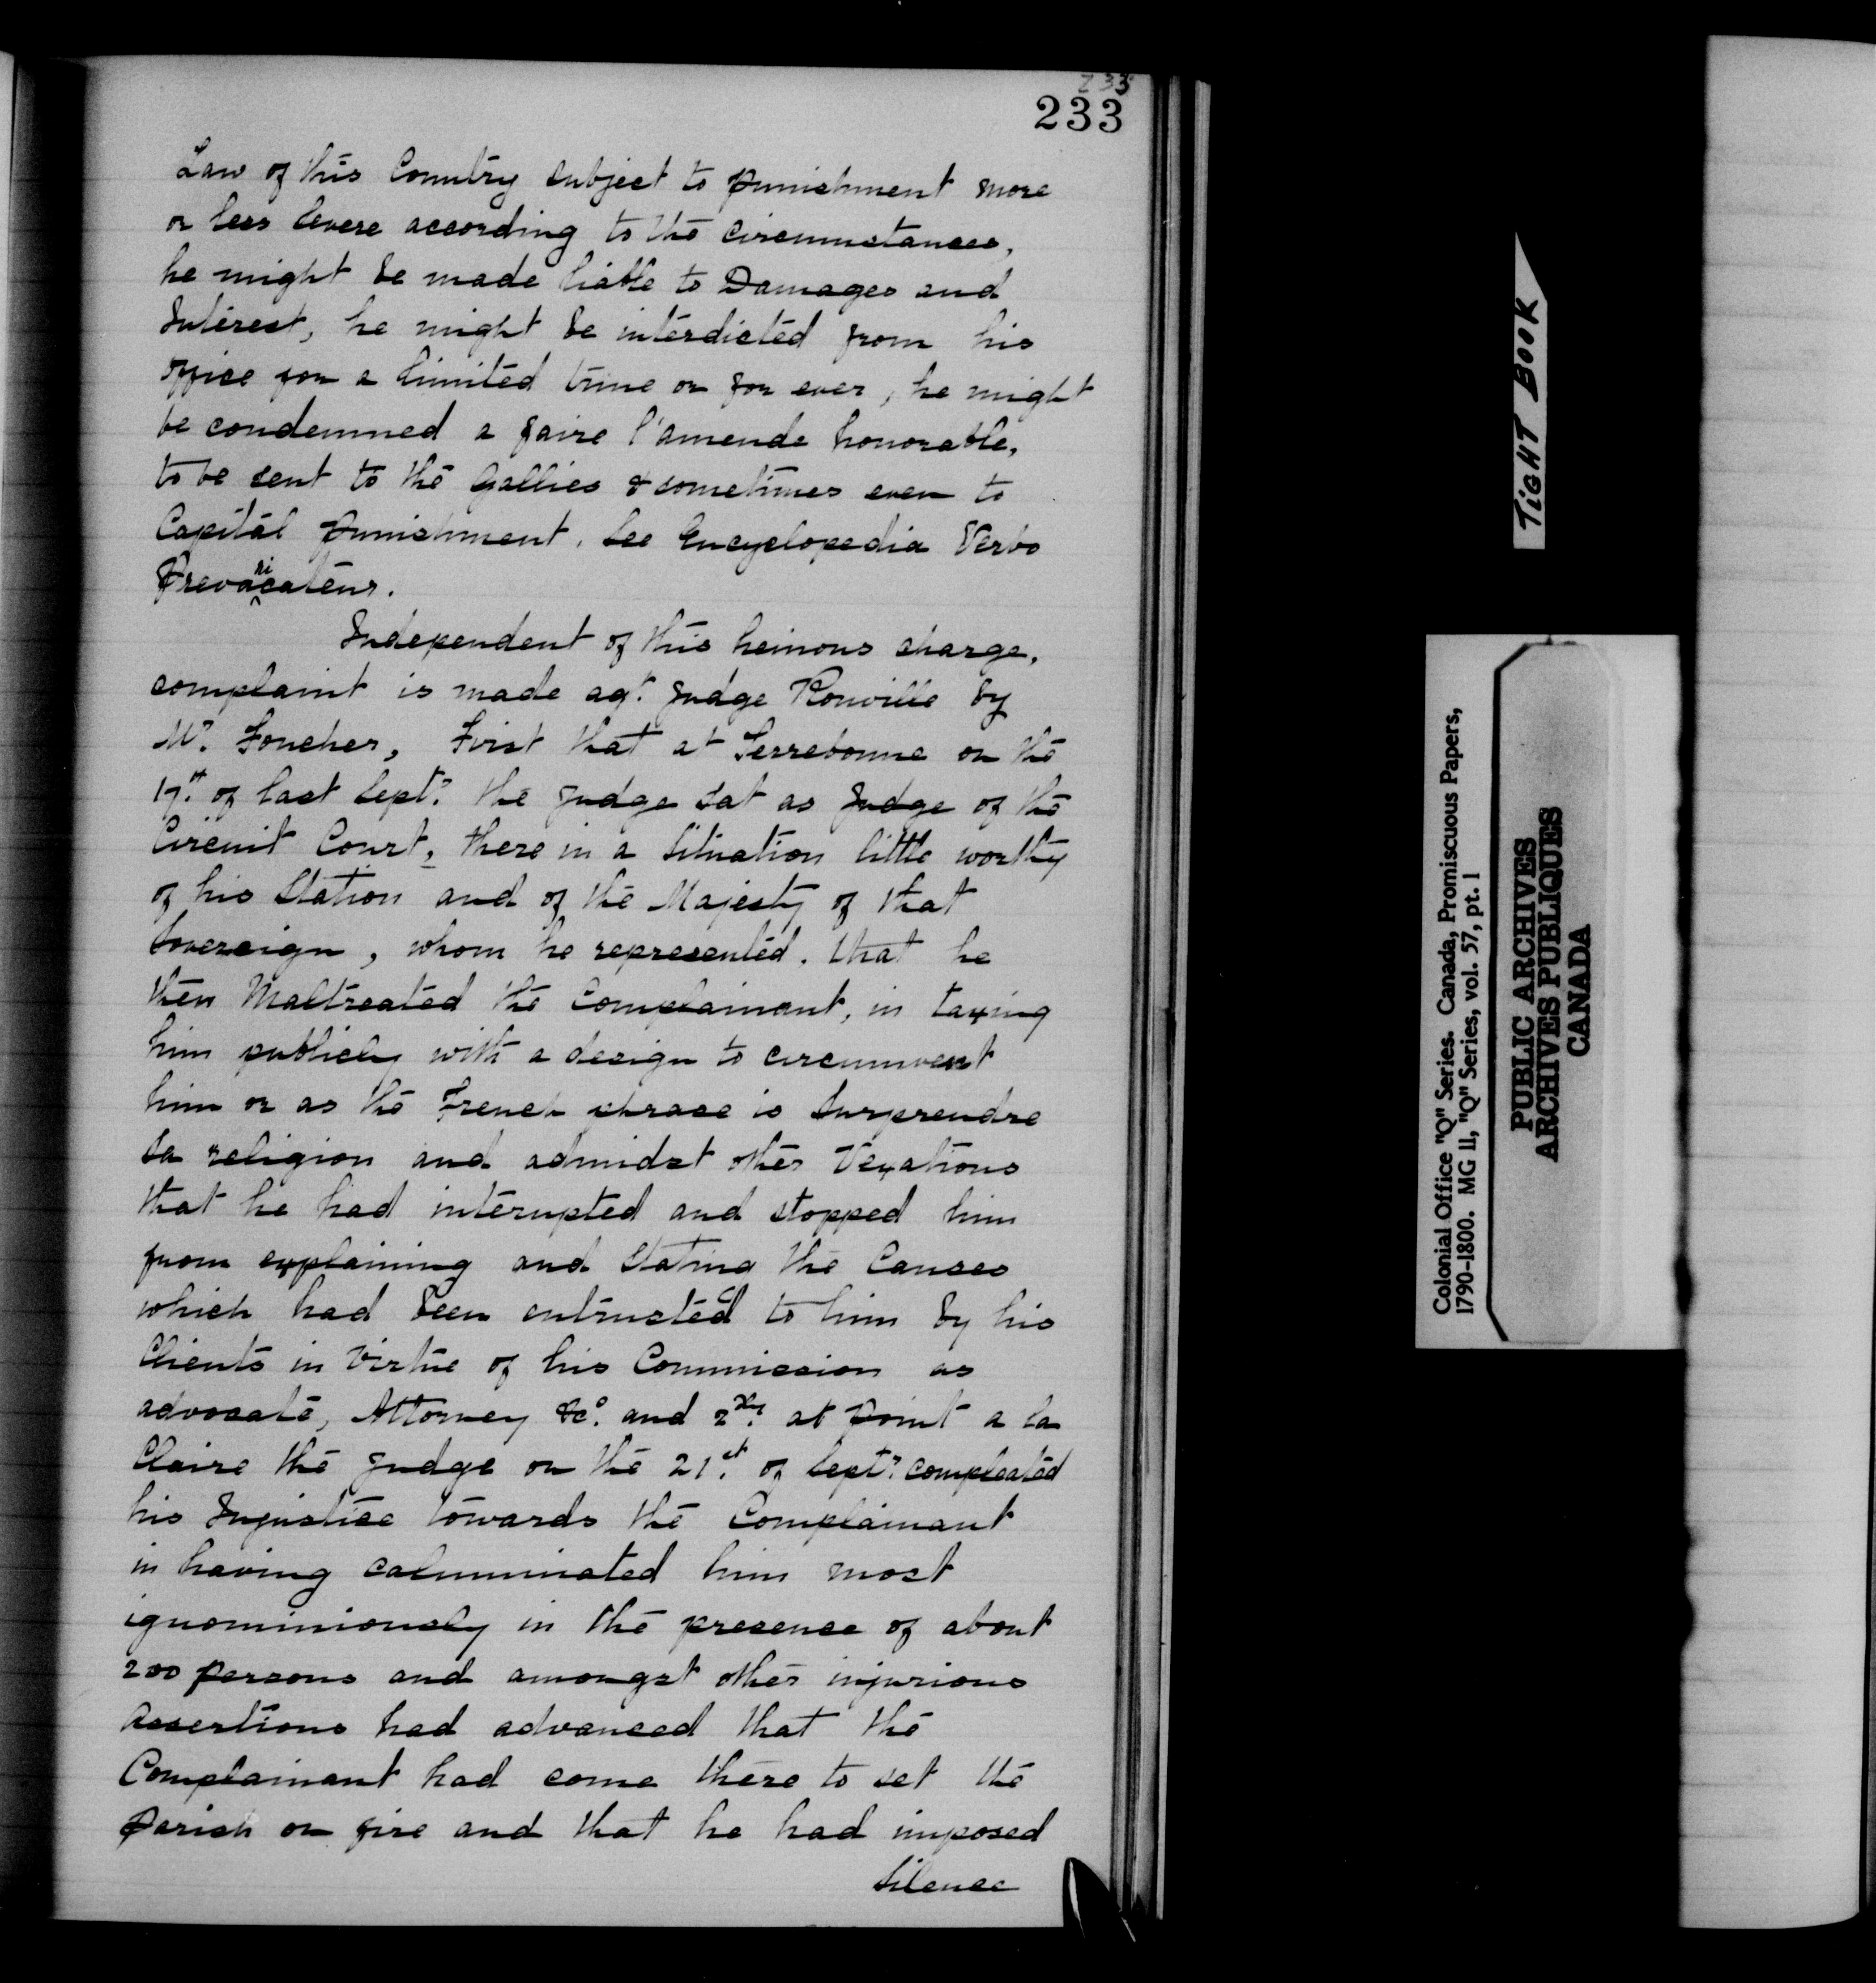 233
233
Law of this Country subject to punishment more
or less severe according to the circumstances,
he might be made liable to Damages and
Interest, he might be interdicted from his
office for a limited time or for ever, he might
be condemned a faire l'amende honorable,
to be sent to the Gallies & sometimes even to
Capital punishment. See Encyclopedia Verbo
Prevaricateur.
Independent of this heinous charge,
complaint is made agt. Judge Rouville by
Mr. Foucher, First that at Terrebonne on the
17th. of last Septr. the Judge sat as Judge of the
Circuit Court, there in a Situation little worthy
of his Station and of the Majesty of that
Sovereign, whom he represented. that he
then Maltreated the Complainant, in taxing
him publicly with a design to circumvent
him or as the French phrase is Surprendre
sa religion and admidst other Vexations
that he had interupted and stopped him
from explaining and Stating the Causes
which had been entrusted to him by his
Clients in Virtue of his Commission as
advocate, Attorney &co. and 2dly. at Point a la
Claire the Judge on the 21st. of Septr. compleated
his Injustice towards the Complainant
in having calumniated him most
ignominiously in the presence of about
200 persons and amongst other injurious
Assertions had advanced that the
Complainant had come there to set the
Parish on fire and that he had imposed
Silence
TIGHT BOOK
Colonial Office "Q" Series. Canada, Promiscuous Papers,
1790-1800. MG 11, "Q" Series, vol. 57, pt. 1
PUBLIC ARCHIVES
ARCHIVES PUBLIQUES
CANADA